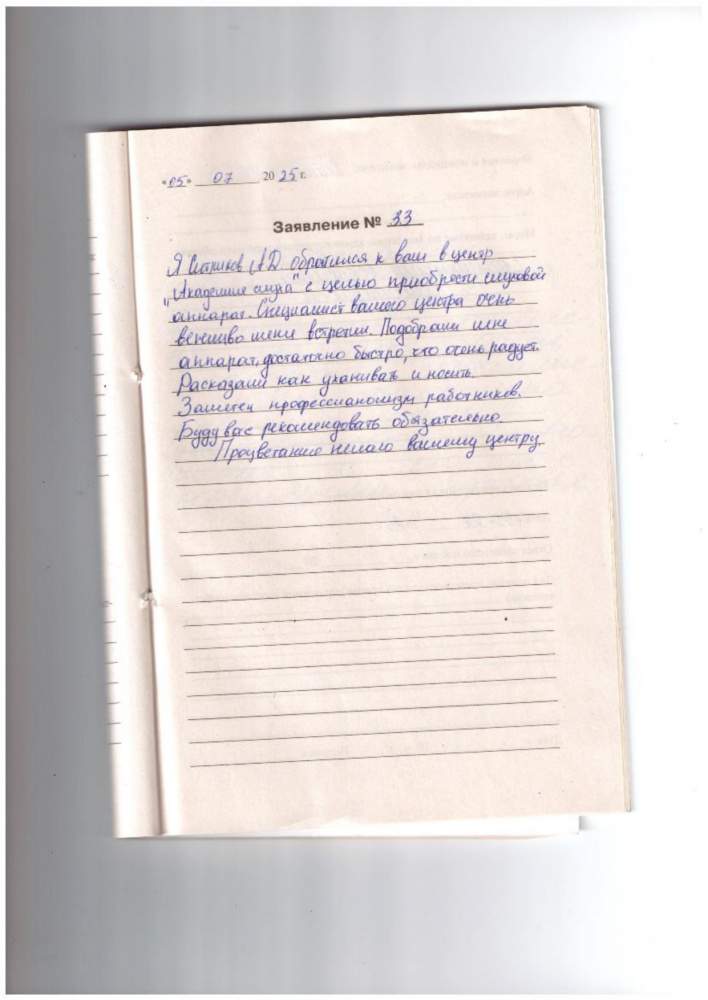 «05» 07 20 25 г.
Заявление № 33
Я АД обратился к вам в центр
„Академия слуха" с целью приобрести слуховой
аппарат. Специалист вашего центра очень
вежливо меня встретил. Подобрали мне
аппарат, достаточно быстро, что очень радует.
Расказали как ухаживать и носить.
Заметен профессионализм работников.
Буду вас рекомендовать обязательно.
Процветанию желаю вашему центру